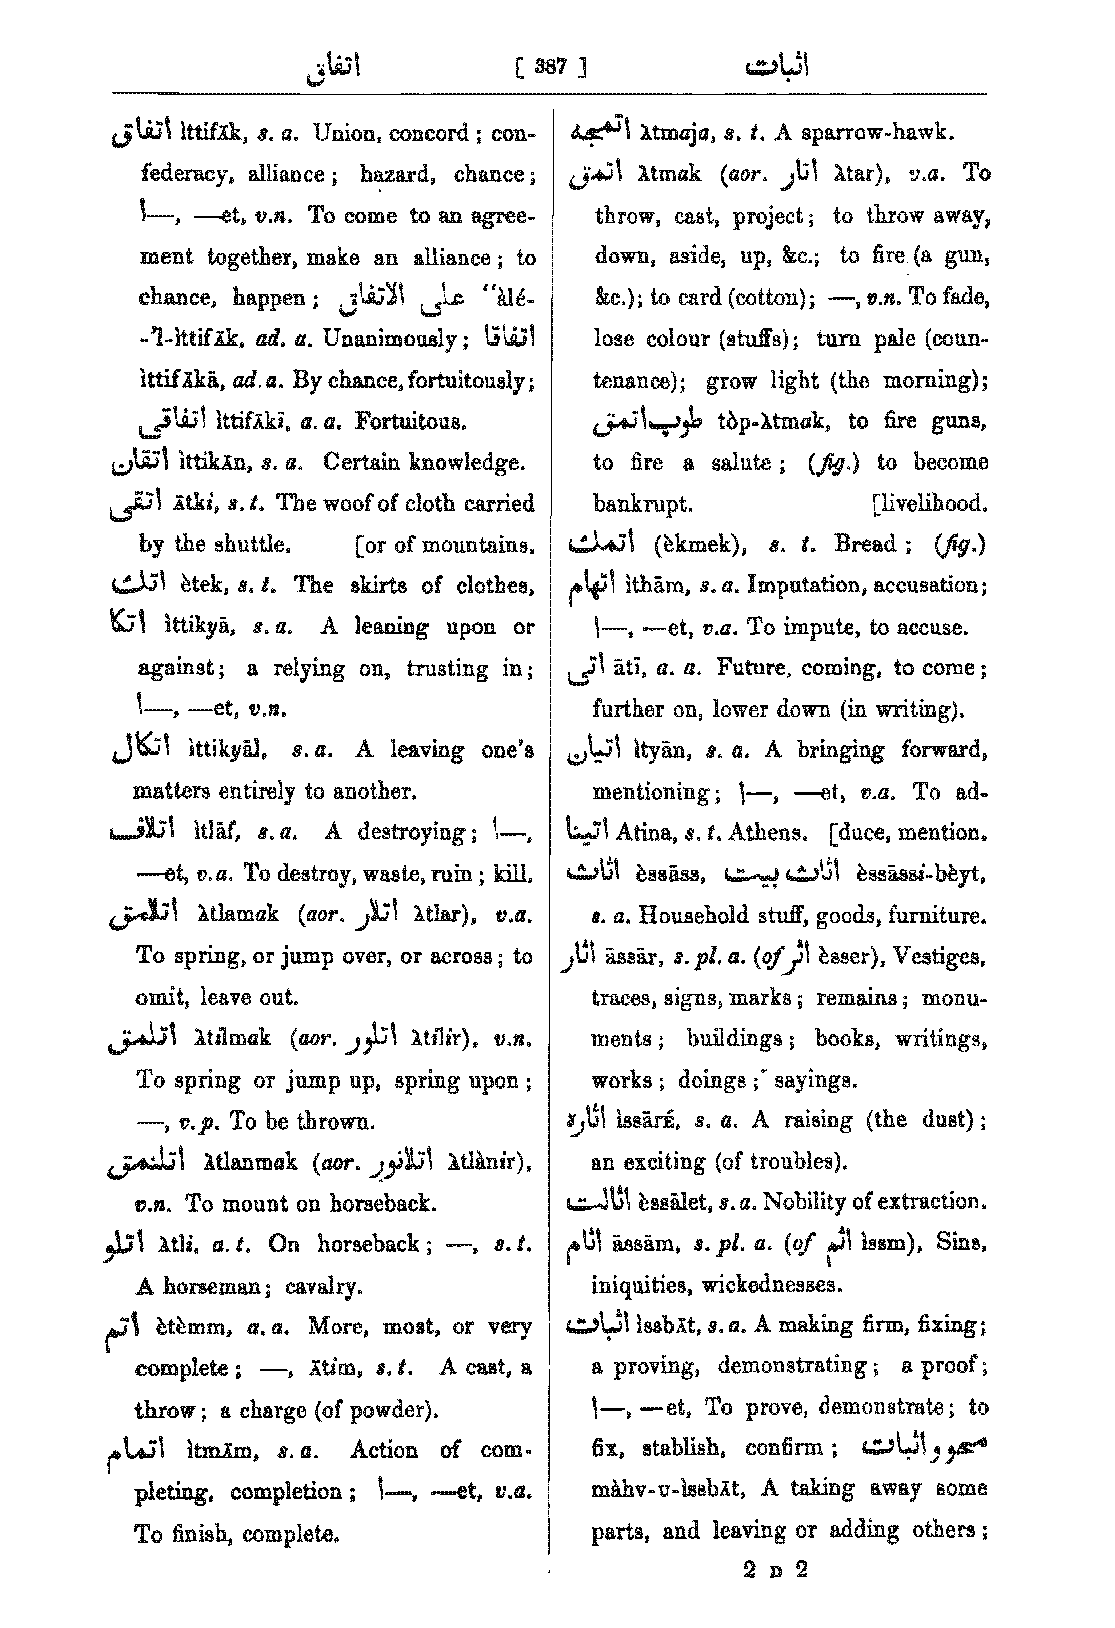 اتفاق [ 387 ] اثبات
اتفاق ìttifĀk, s. a. Union, concord ; con-
federacy, alliance ; hazard, chance ;
ا—, —et, v.n. To come to an agree-
ment together, make an alliance ; to
chance, happen ; على الاتفاق “àlé-
-’l-ìttifĀk, ad. a. Unanimously ; اتفاقا
ìttifĀkā, ad. a. By chance, fortuitously ;
اتفاقى ìttifĀkī, a. a. Fortuitous.
اتقان ìttikĀn, s. a. Certain knowledge.
اتقى Ātki, s. t. The woof of cloth carried
by the shuttle. [or of mountains.
اتك ètek, s. t. The skirts of clothes,
اتكا ìttikyā, s. a. A leaning upon or
against ; a relying on, trusting in ;
ا—, —et, v.n.
اتكال ìttikyāl, s. a. A leaving one's
matters entirely to another.
اتلاف ìtlāf, s. a. A destroying ; ا—,
—et, v.a. To destroy, waste, ruin ; kill.
اتلامق λtlamak (aor. اتلار λtlar), v.a.
To spring, or jump over, or across ; to
omit, leave out.
اتلمق λtılmak (aor. اتلور λtílír), v.n.
To spring or jump up, spring upon ;
—, v.p. To be thrown.
اتلنمق λtlanmak (aor. اتلانور λtlànír),
v.n. To mount on horseback.
اتلو λtli, a. t. On horseback ; —, s. t.
A horseman ; cavalry.
اتم ètèmm, a. a. More, most, or very
complete ; —, Ātím, s. t. A cast, a
throw ; a charge (of powder).
اتمام ìtmĀm, s. a. Action of com-
pleting, completion ; ا—, —et, v.a.
To finish, complete.
اتمجه λtmaja, s. t. A sparrow-hawk.
اتمق λtmak (aor. اتار λtar), v.a. To
throw, cast, project ; to throw away,
down, aside, up, &c.; to fire (a gun,
&c.); to card (cotton); —, v.n. To fade,
lose colour (stuffs); turn pale (coun-
tenance); grow light (the morning);
طوپ اتمق tòp-λtmak, to fire guns,
to fire a salute ; (fig.) to become
bankrupt. [livelihood.
اتمك (èkmek), s. t. Bread ; (fig.)
اتهام ìthām, s. a. Imputation, accusation ;
ا—, —et, v.a. To impute, to accuse.
اتى ātī, a. a. Future, coming, to come ;
further on, lower down (in writing).
اتيان ìtyān, s. a. A bringing forward,
mentioning ; ا—, —et, v.a. To ad-
اتينا Atina, s. t. Athens. [duce, mention.
اثاث èssāss, اثاث بيت èssāssi-bèyt,
s. a. Household stuff, goods, furniture.
اثار āssār, s. pl. a. (of اثر èsser), Vestiges,
traces, signs, marks ; remains ; monu-
ments ; buildings ; books, writings,
works ; doings ; sayings.
اثاره ìssārÉ, s. a. A raising (the dust) ;
an exciting (of troubles).
اثالت èssālet, s. a. Nobility of extraction.
اثام āssām, s. pl. a. (of اثم ìssm), Sins,
iniquities, wickednesses.
اثبات ìssbĀt, s. a. A making firm, fixing ;
a proving, demonstrating ; a proof ;
ا—, —et, To prove, demonstrate ; to
fix, stablish, confirm ; محو و اثبات
màhv-u-ìssbĀt, A taking away some
parts, and leaving or adding others ;
2 D 2